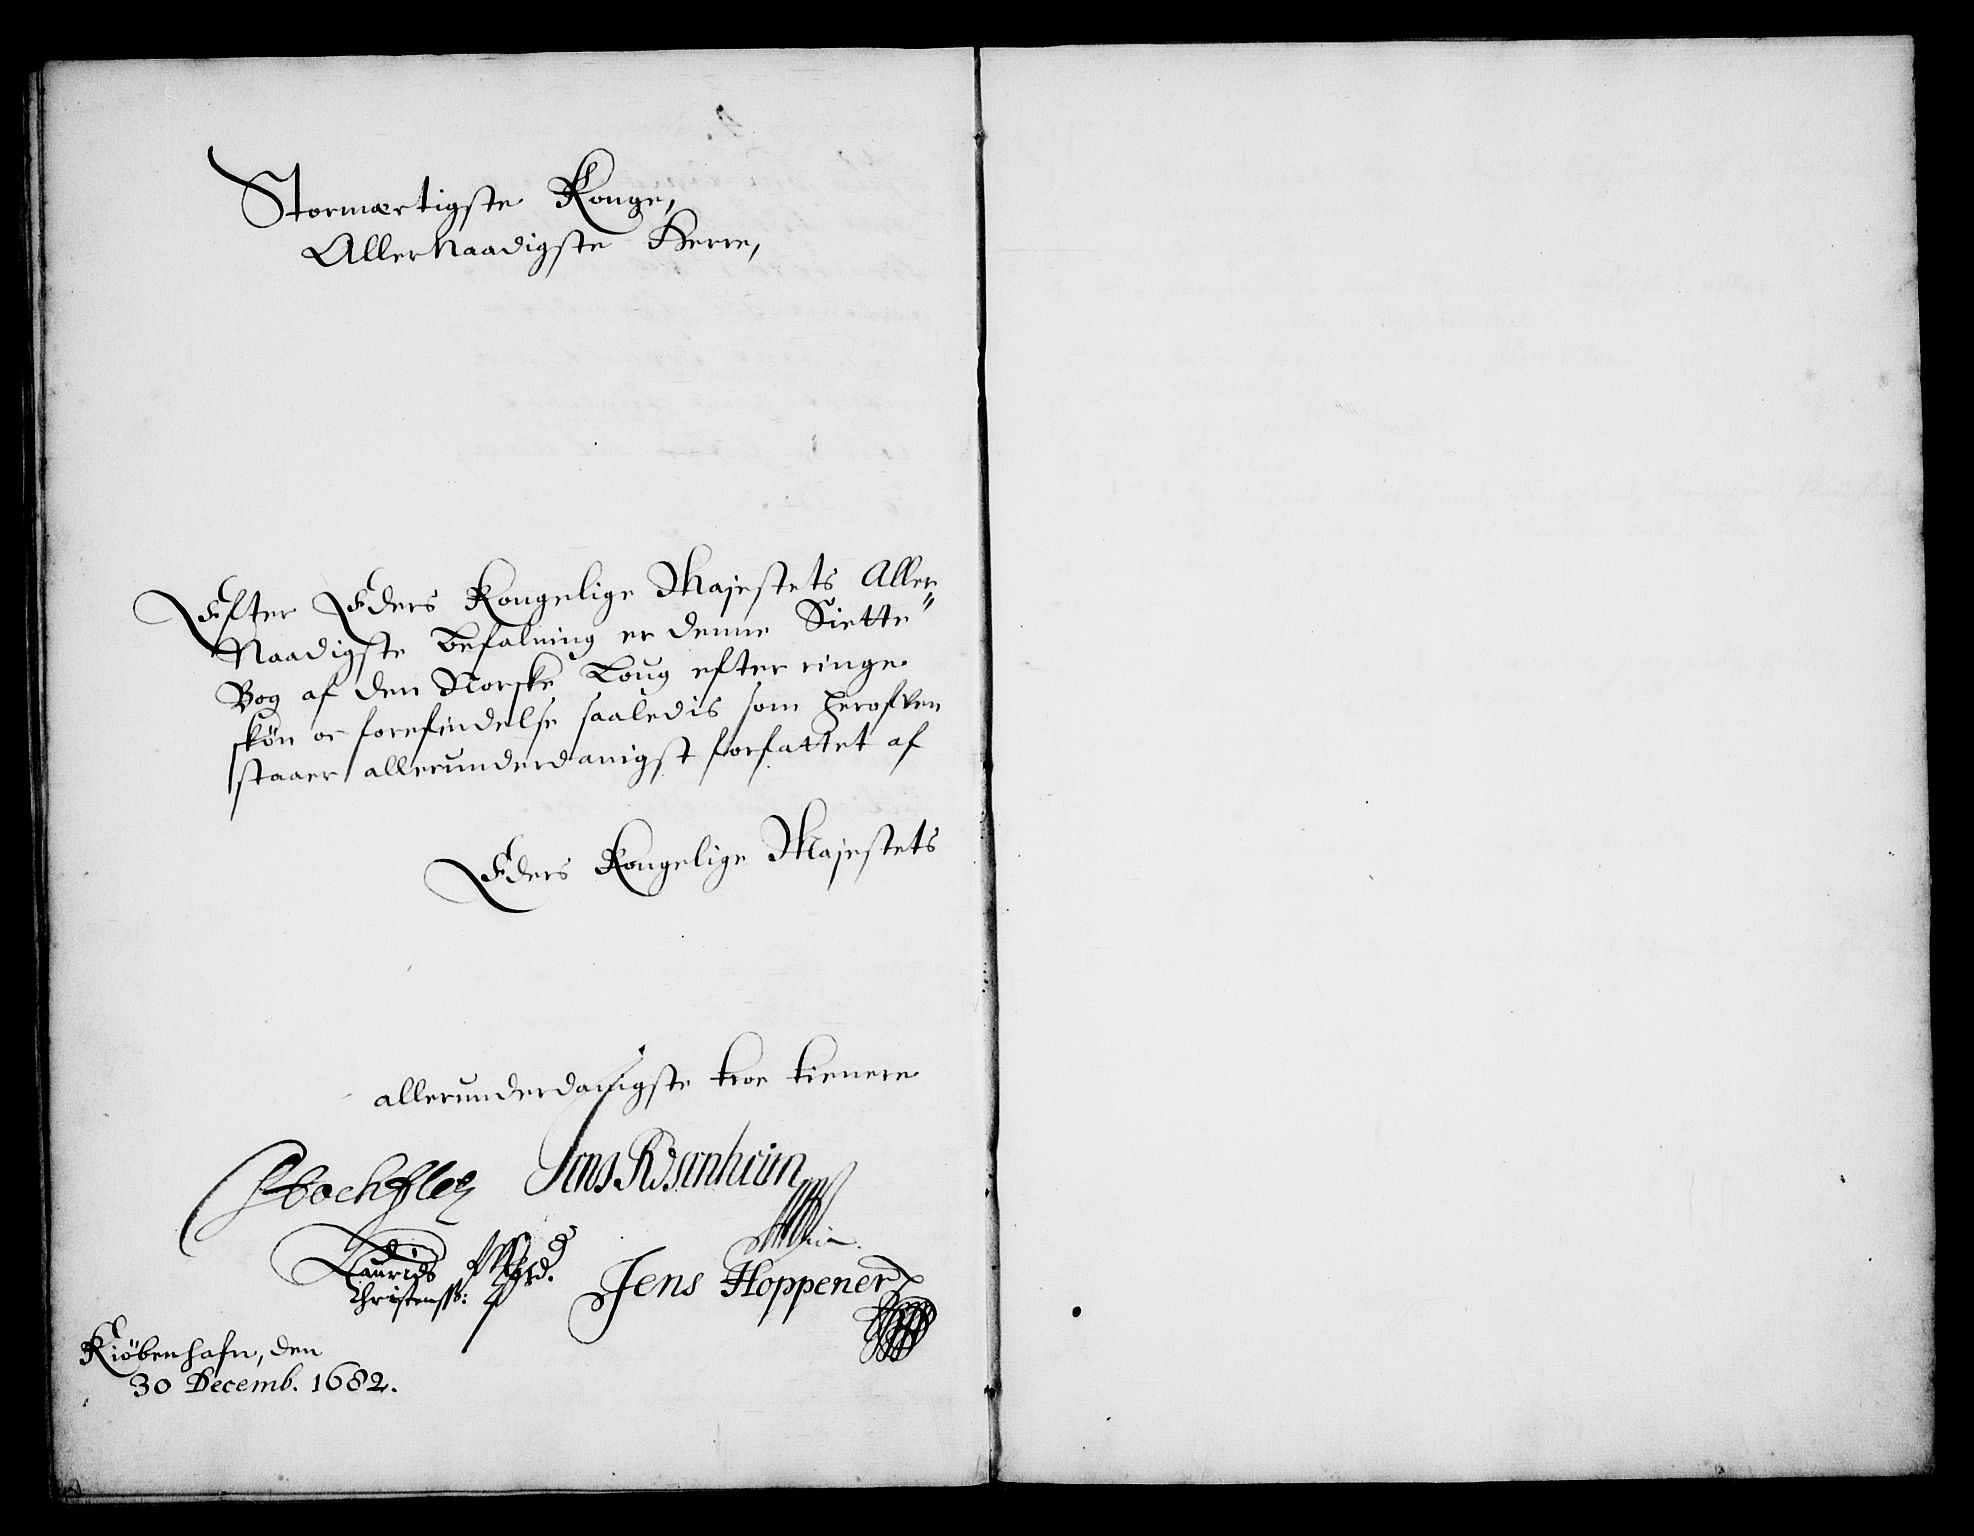 Stormæctigste Konge,
Allernaadigste Herre,
Efter Eders Kongelige Majestets Aller„
Naadigste Befalning er denne Siette
Bog af den Norske Loug efter ringe
skön oc forefindelse saaledis som herofven
staaer allerunderdanigst forfattet af
Eders Kongelige Majestets
allerunderdanigste troe tienere
Jens Rosenheim
Laurids
Christenss:
Jens Hoppener
Kiöbenhafn, den
30 Decemb. 1682.